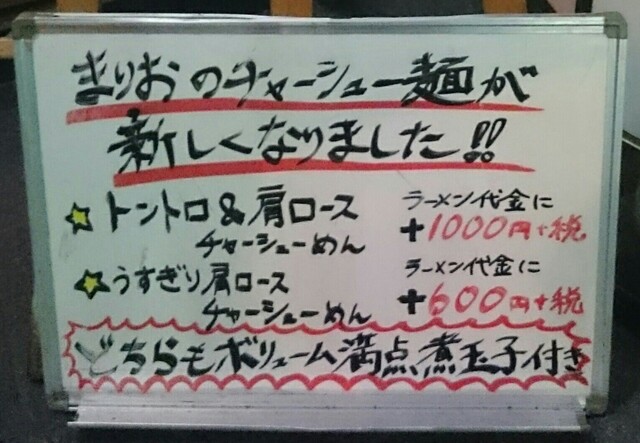 まりおのチャーシュー麺が
新しくなりました!!
トントロ&肩ロース
チャーシューめん
ラーメン代金に
+1000円+税
うすぎり肩ロース
チャーシューめん
ラーメン代金に
+600円+税
どちらもボリューム満点煮玉子付き